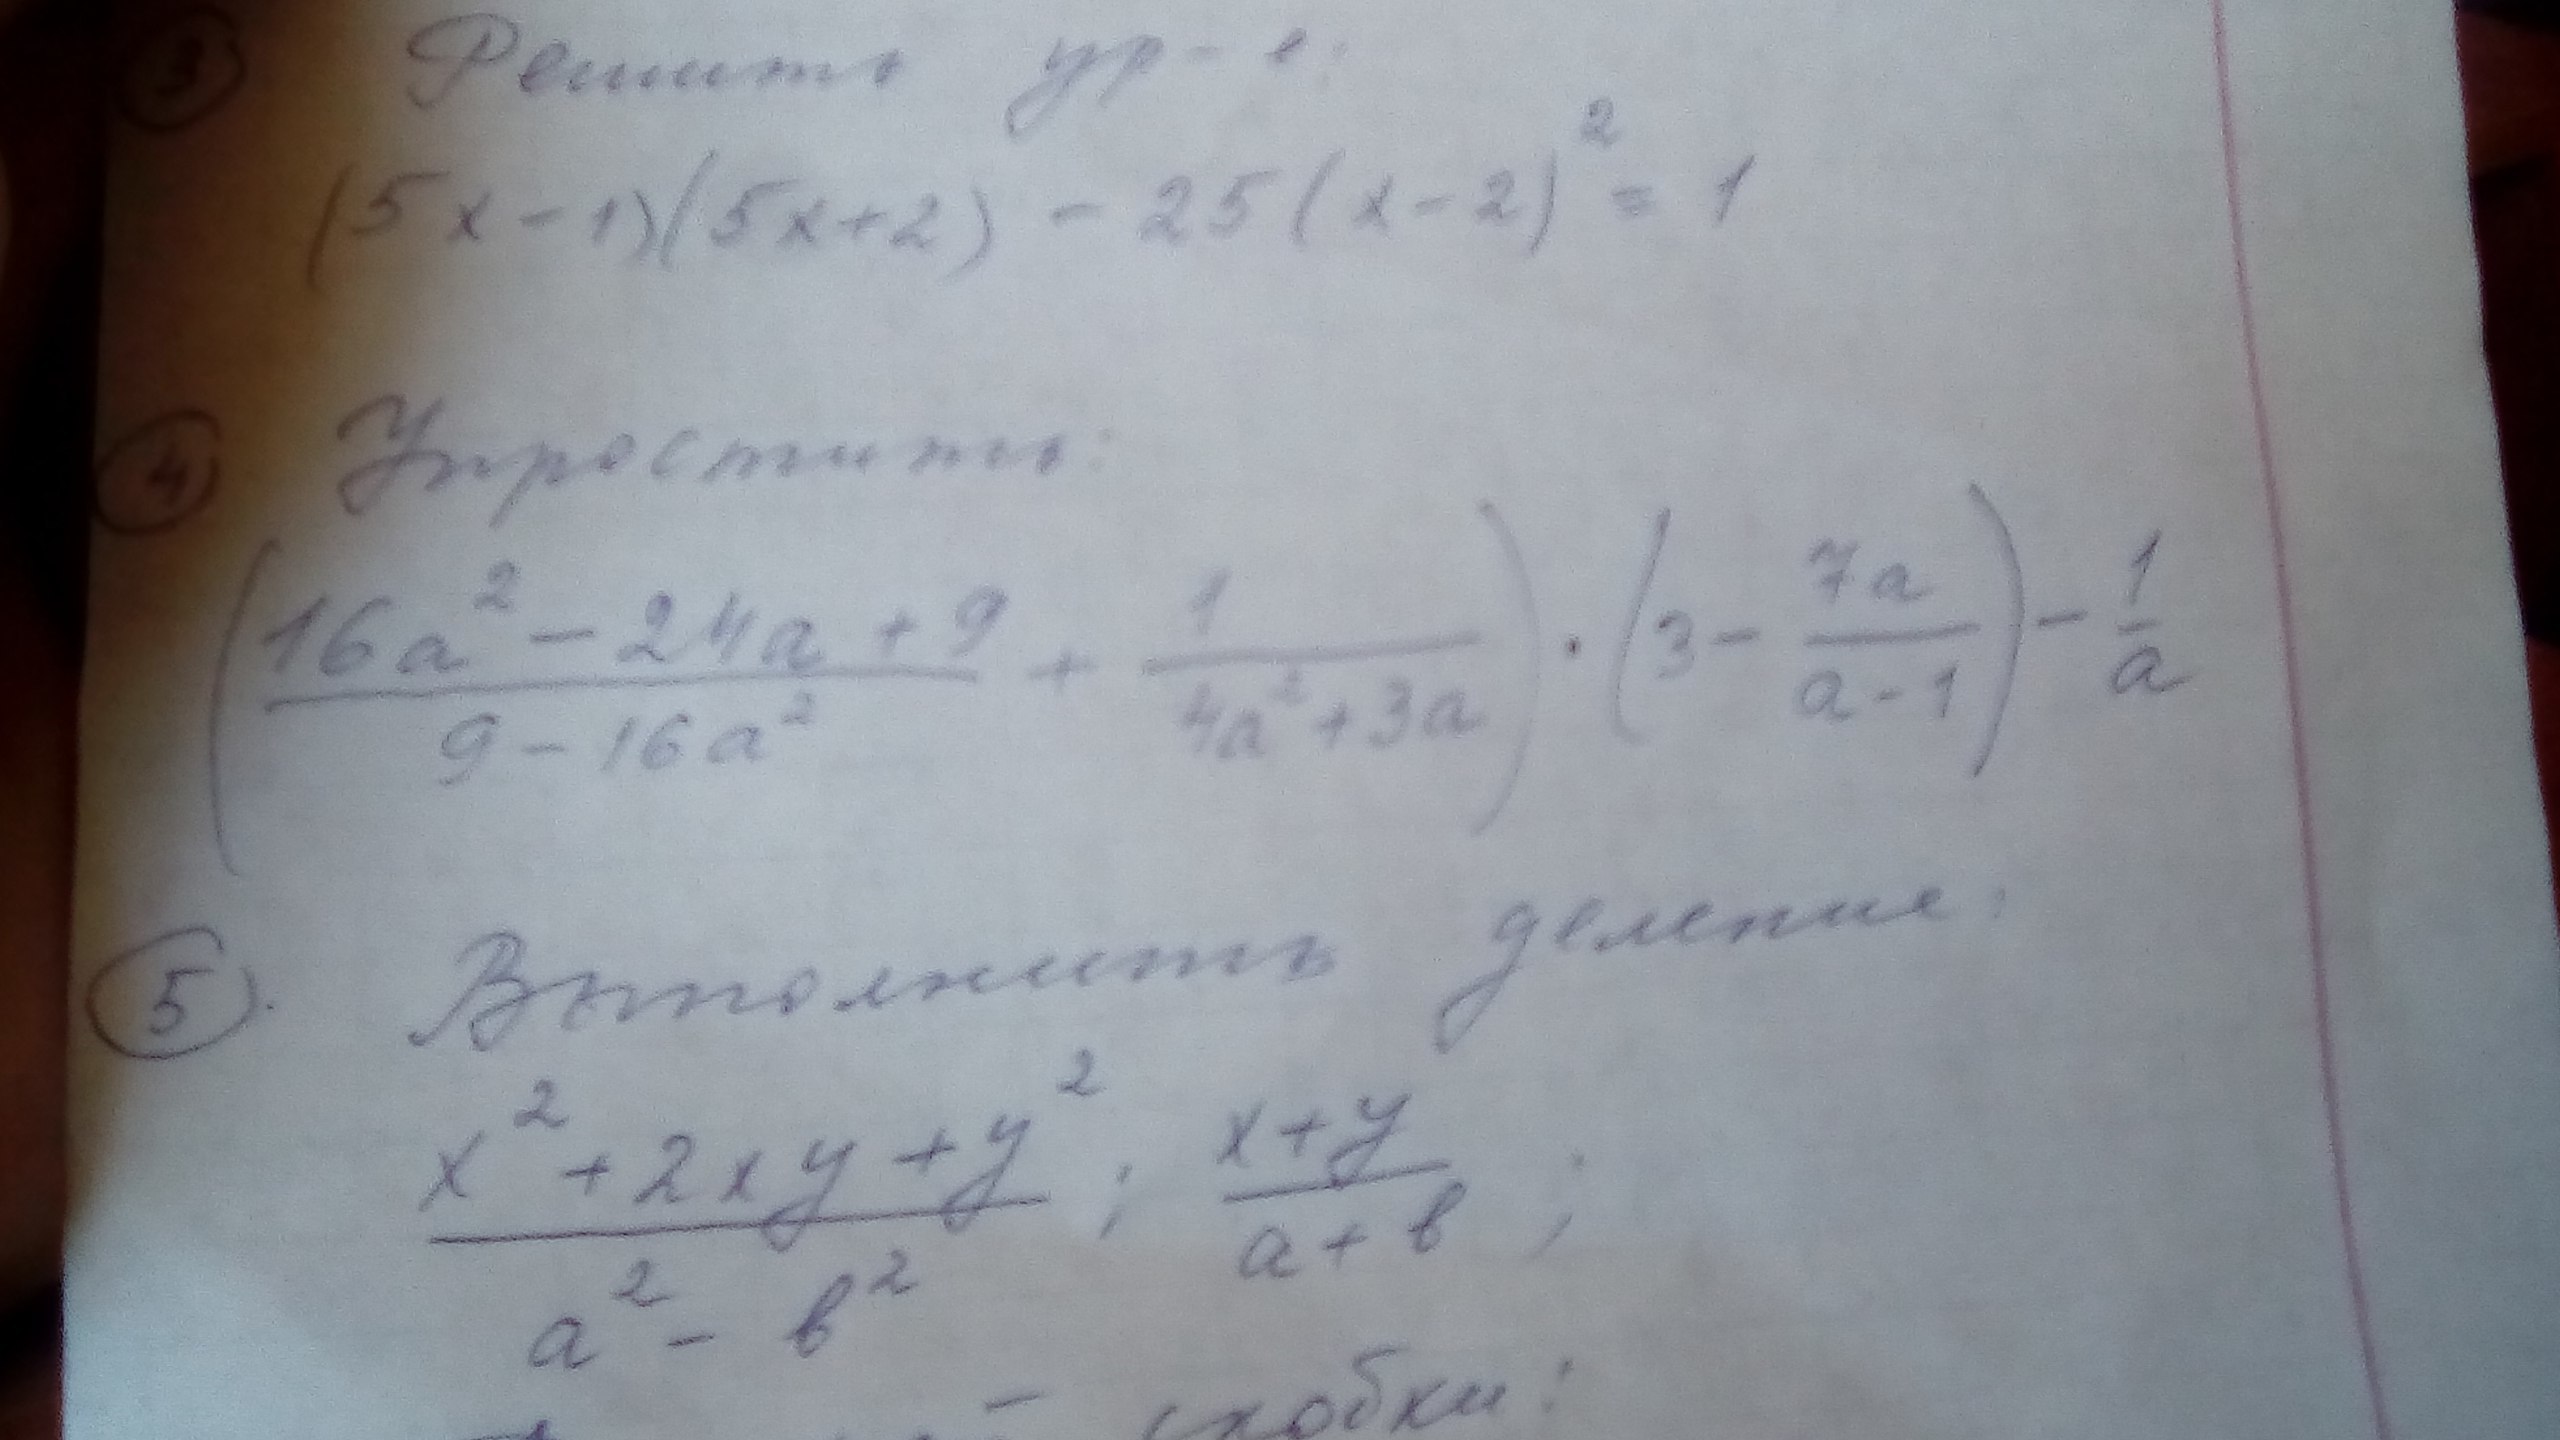 3 Решить ур-е:
(5x-1)(5x+2) - 25(x-2)² = 1
4 Упростить:
((16a² - 24a + 9)/(9 - 16a²) + 1/(4a² + 3a)) · (3 - 7a/(a-1)) - 1/a
5. Выполнить деление:
(x² + 2xy + y²)/(a² - b²) ; (x+y)/(a+b) ;
скобки: